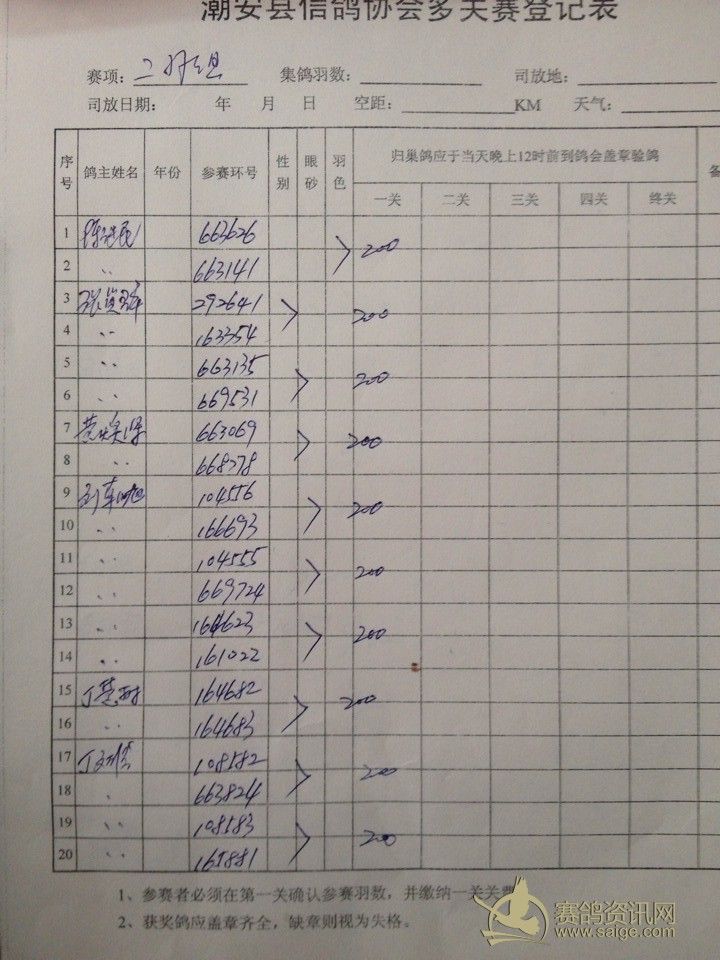 潮安县信鸽协会多关赛登记表
赛项: 二羽组 集鸽羽数: 司放地:
司放日期: 年 月 日 空距: KM 天气:
序号 鸽主姓名 年份 参赛环号 性别 眼砂 羽色 归巢鸽应于当天晚上12时前到鸽会盖章验鸽
一关 二关 三关 四关 终关
1 663626
200
2 〃 663141
3 292641
200
4 〃 163354
5 〃 663135
200
6 〃 669531
7 663069
200
8 〃 668278
9 104556
200
10 〃 166693
11 〃 104555
200
12 〃 669724
13 〃 164623
200
14 〃 161022
15 164682
200
16 〃 164683
17 108582
200
18 〃 663824
19 〃 108583
200
20 〃
1、参赛者必须在第一关确认参赛羽数，并缴纳一关关费
2、获奖鸽应盖章齐全，缺章则视为失格。
赛鸽资讯网
www.saige.com